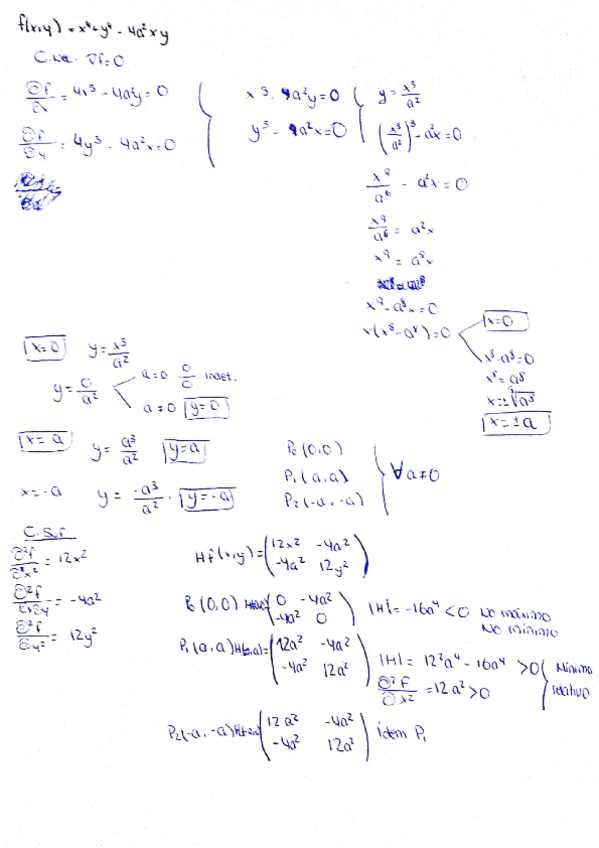 f(x,y) = x⁴ + y⁴ - 4a²xy
C.Ne. ∇f=0
∂f/∂x = 4x³ - 4a²y = 0
∂f/∂y = 4y³ - 4a²x = 0
x³ - a²y = 0
y³ - a²x = 0
y = x³/a²
(x³/a²)³ - a²x = 0
x⁹/a⁶ - a²x = 0
x⁹/a⁶ = a²x
x⁹ = a⁸x
x⁹ - a⁸x = 0
x(x⁸ - a⁸) = 0
x=0
x⁸ - a⁸ = 0
x⁸ = a⁸
x = ±⁸√a⁸
x = ±a
x=0 y = x³/a²
y = 0/a²
a=0 0/0 indet.
a≠0 y=0
x=a y = a³/a² y=a
x=-a y = -a³/a² y=-a
P₀(0,0)
P₁(a,a)
P₂(-a,-a)
∀a≠0
C.Suf
∂²f/∂x² = 12x²
∂²f/∂x∂y = -4a²
∂²f/∂y² = 12y²
Hf(x,y) = (12x² -4a²
-4a² 12y²)
P₀(0,0) H(0,0) (0 -4a²
-4a² 0) |H| = -16a⁴ < 0 No máximo
No mínimo
P₁(a,a) H(a,a) = (12a² -4a²
-4a² 12a²) |H| = 12²a⁴ - 16a⁴ > 0
∂²f/∂x² = 12a² > 0
Mínimo
relativo
P₂(-a,-a) (12a² -4a²
-4a² 12a²) ídem P₁